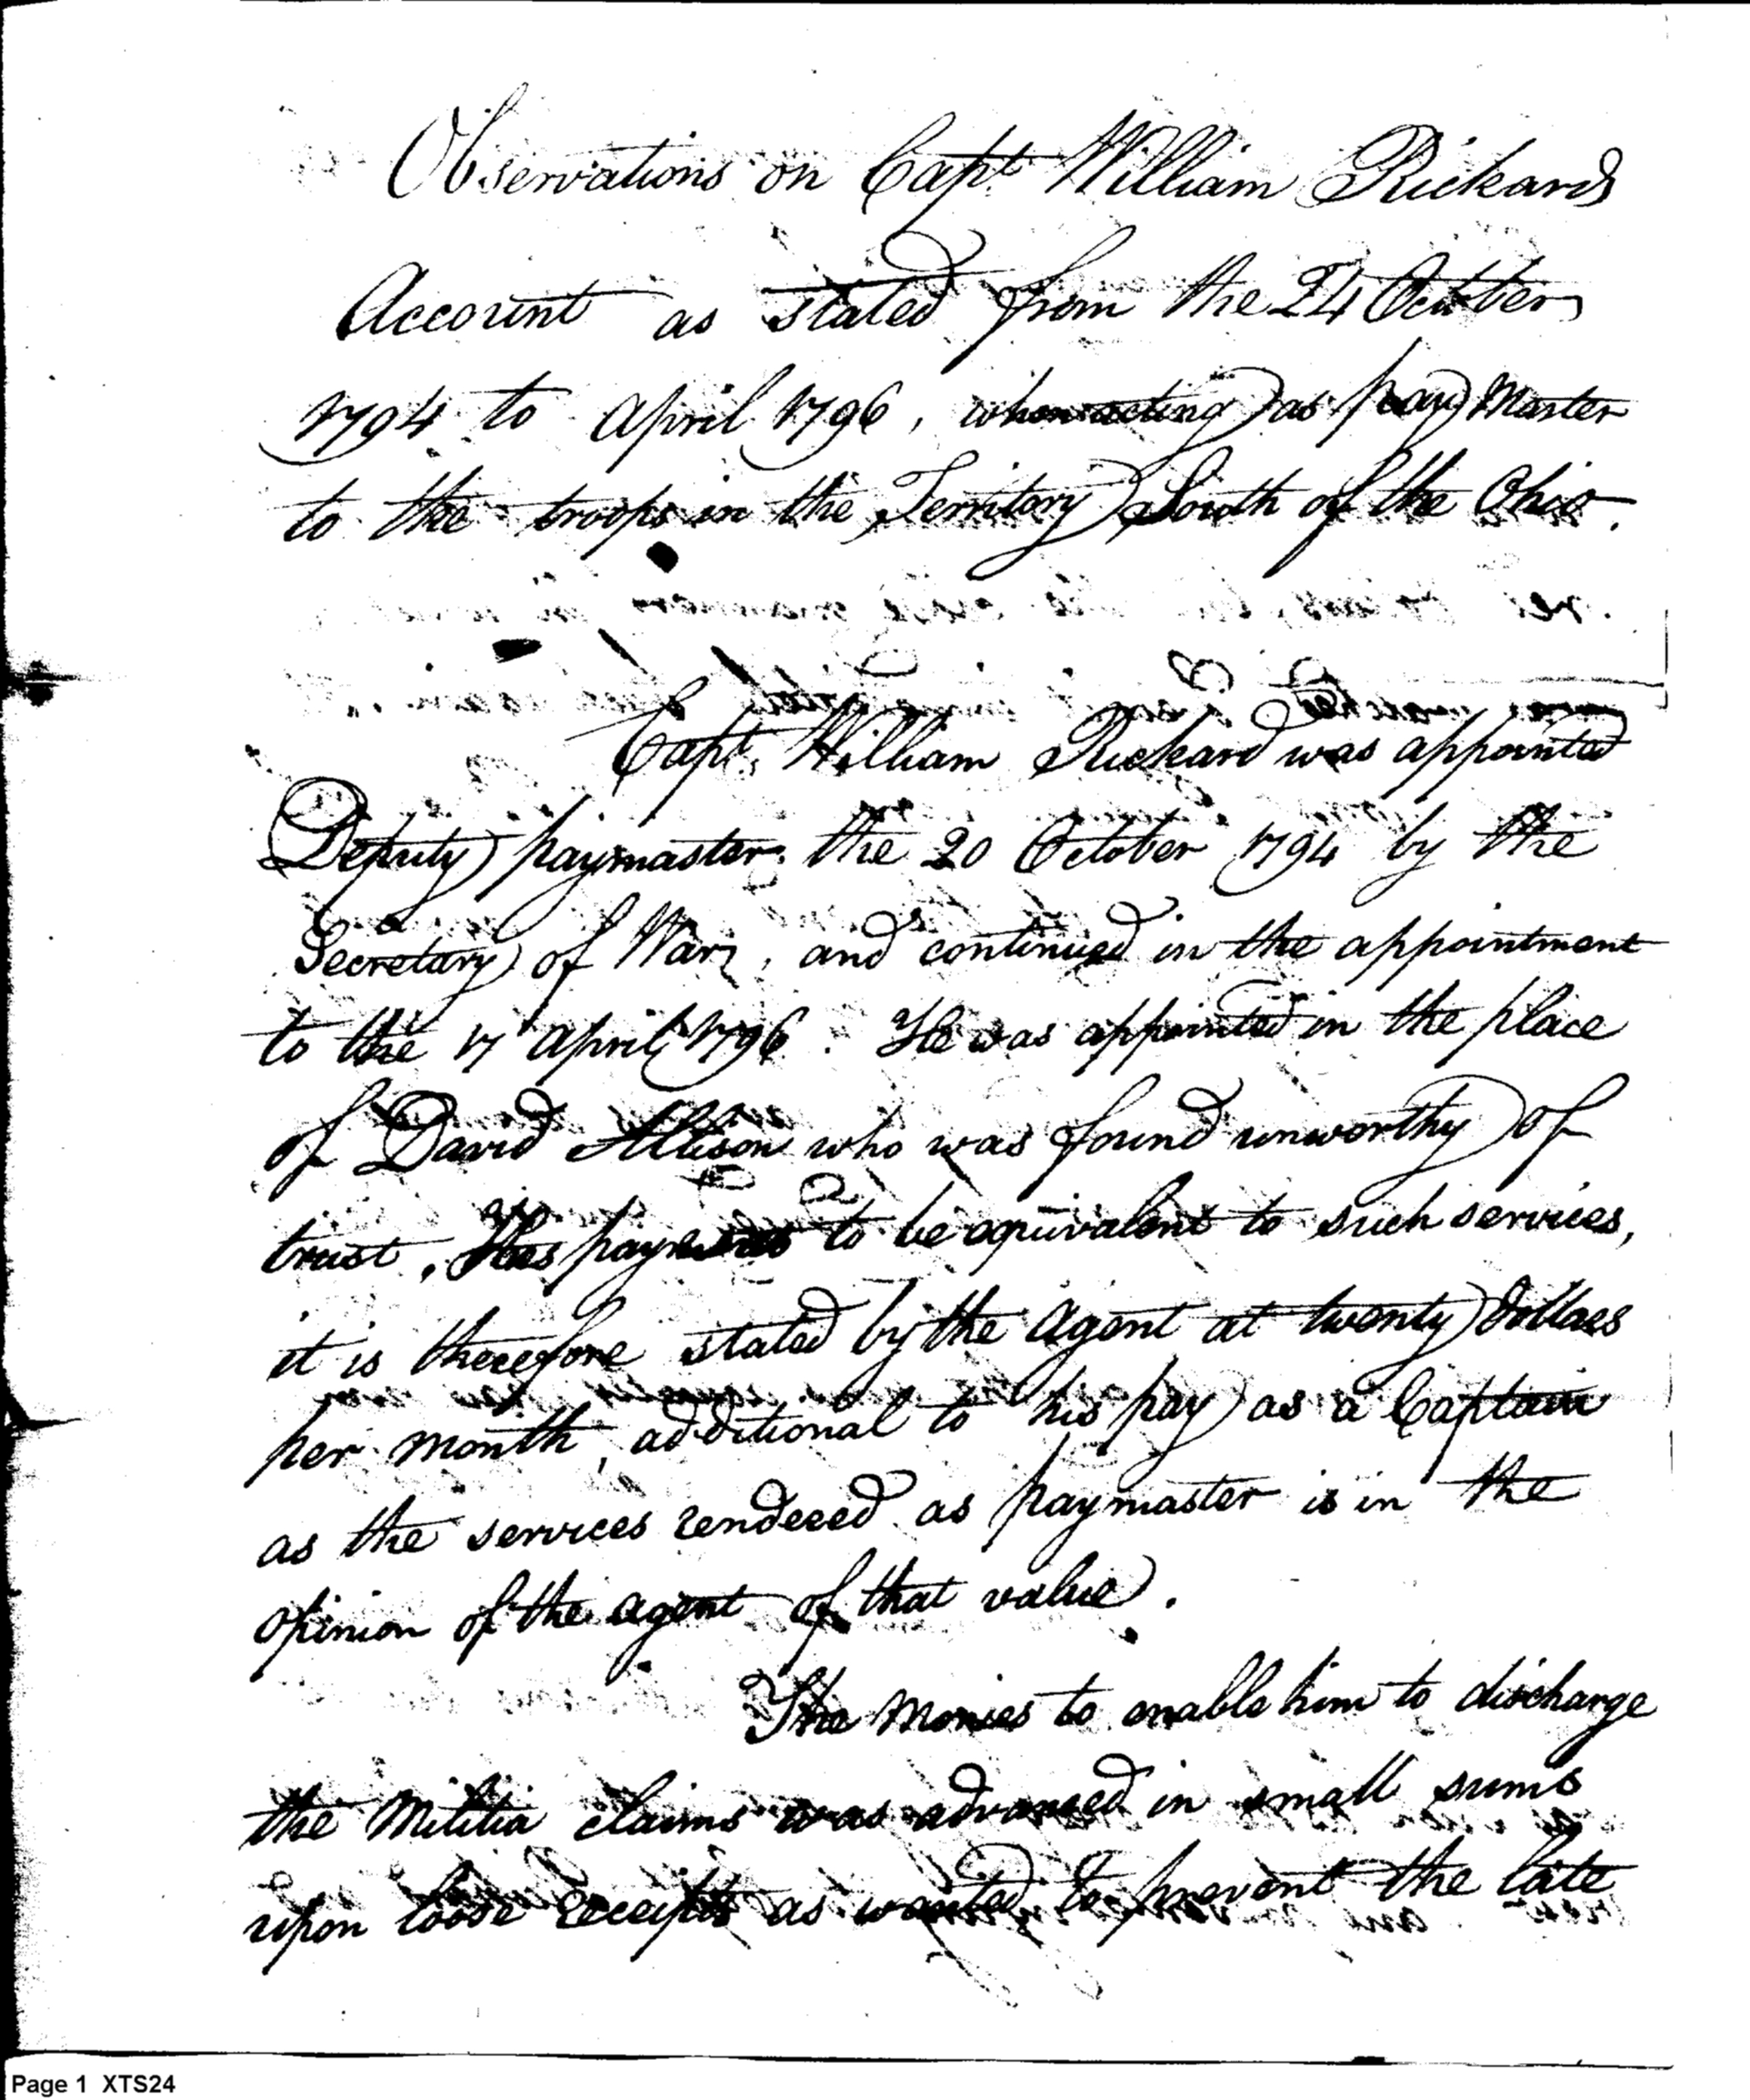 Observations on Capt. William Rickards
Account as stated from the 24 October
1794 to April 1796, when acting as pay Master
to the troops in the Territory South of the Ohio.
Capt. William Rickard was appointed
Deputy paymaster the 20 October 1794 by the
Secretary of War, and continued in the appointment
to the 17 April 1796. He was appointed in the place
of David Allison who was found unworthy of
trust. His pay was to be equivalent to such services,
it is therefore stated by the Agent at twenty dollars
per month, additional to his pay as a Captain
as the services rendered as paymaster is in the
opinion of the agent of that value.
The Monies to enable him to discharge
the Militia claims was advanced in small sums
upon loose receipts as wanted to prevent the late
Page 1 XTS24